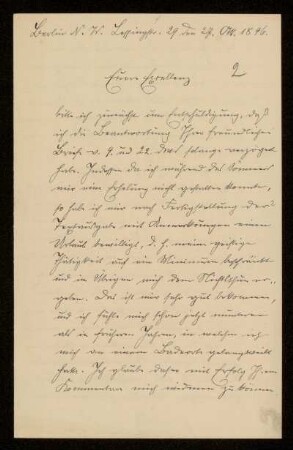 Berlin N. W. Lessingstr. 29 den 29. Okt. 1896.
2
Euere Excellenz
bitte ich zunächst um Entschuldigung, daß
ich die Beantwortung Ihrer freundlichen
Briefe v. 9. und 22. d. M. so lange verzögert
habe. Indessen da ich während des Sommers
mir eine Erholung nicht gestatten konnte,
so habe ich mir nach Fertigstellung der
Textausgabe mit Anmerkungen einen
Urlaub bewilligt, d. h. meine geistige
Thätigkeit auf ein Minimum beschränkt
und im Übrigen mich dem Nichtsthun er-
geben. Das ist mir sehr gut bekommen,
und ich fühle mich schon jetzt munterer
als in früheren Jahren, in welchen ich
mich an einem Badeorte gelangweilt
hatte. Ich glaube daher mit Erfolg Ihrem
Kommentar mich widmen zu können